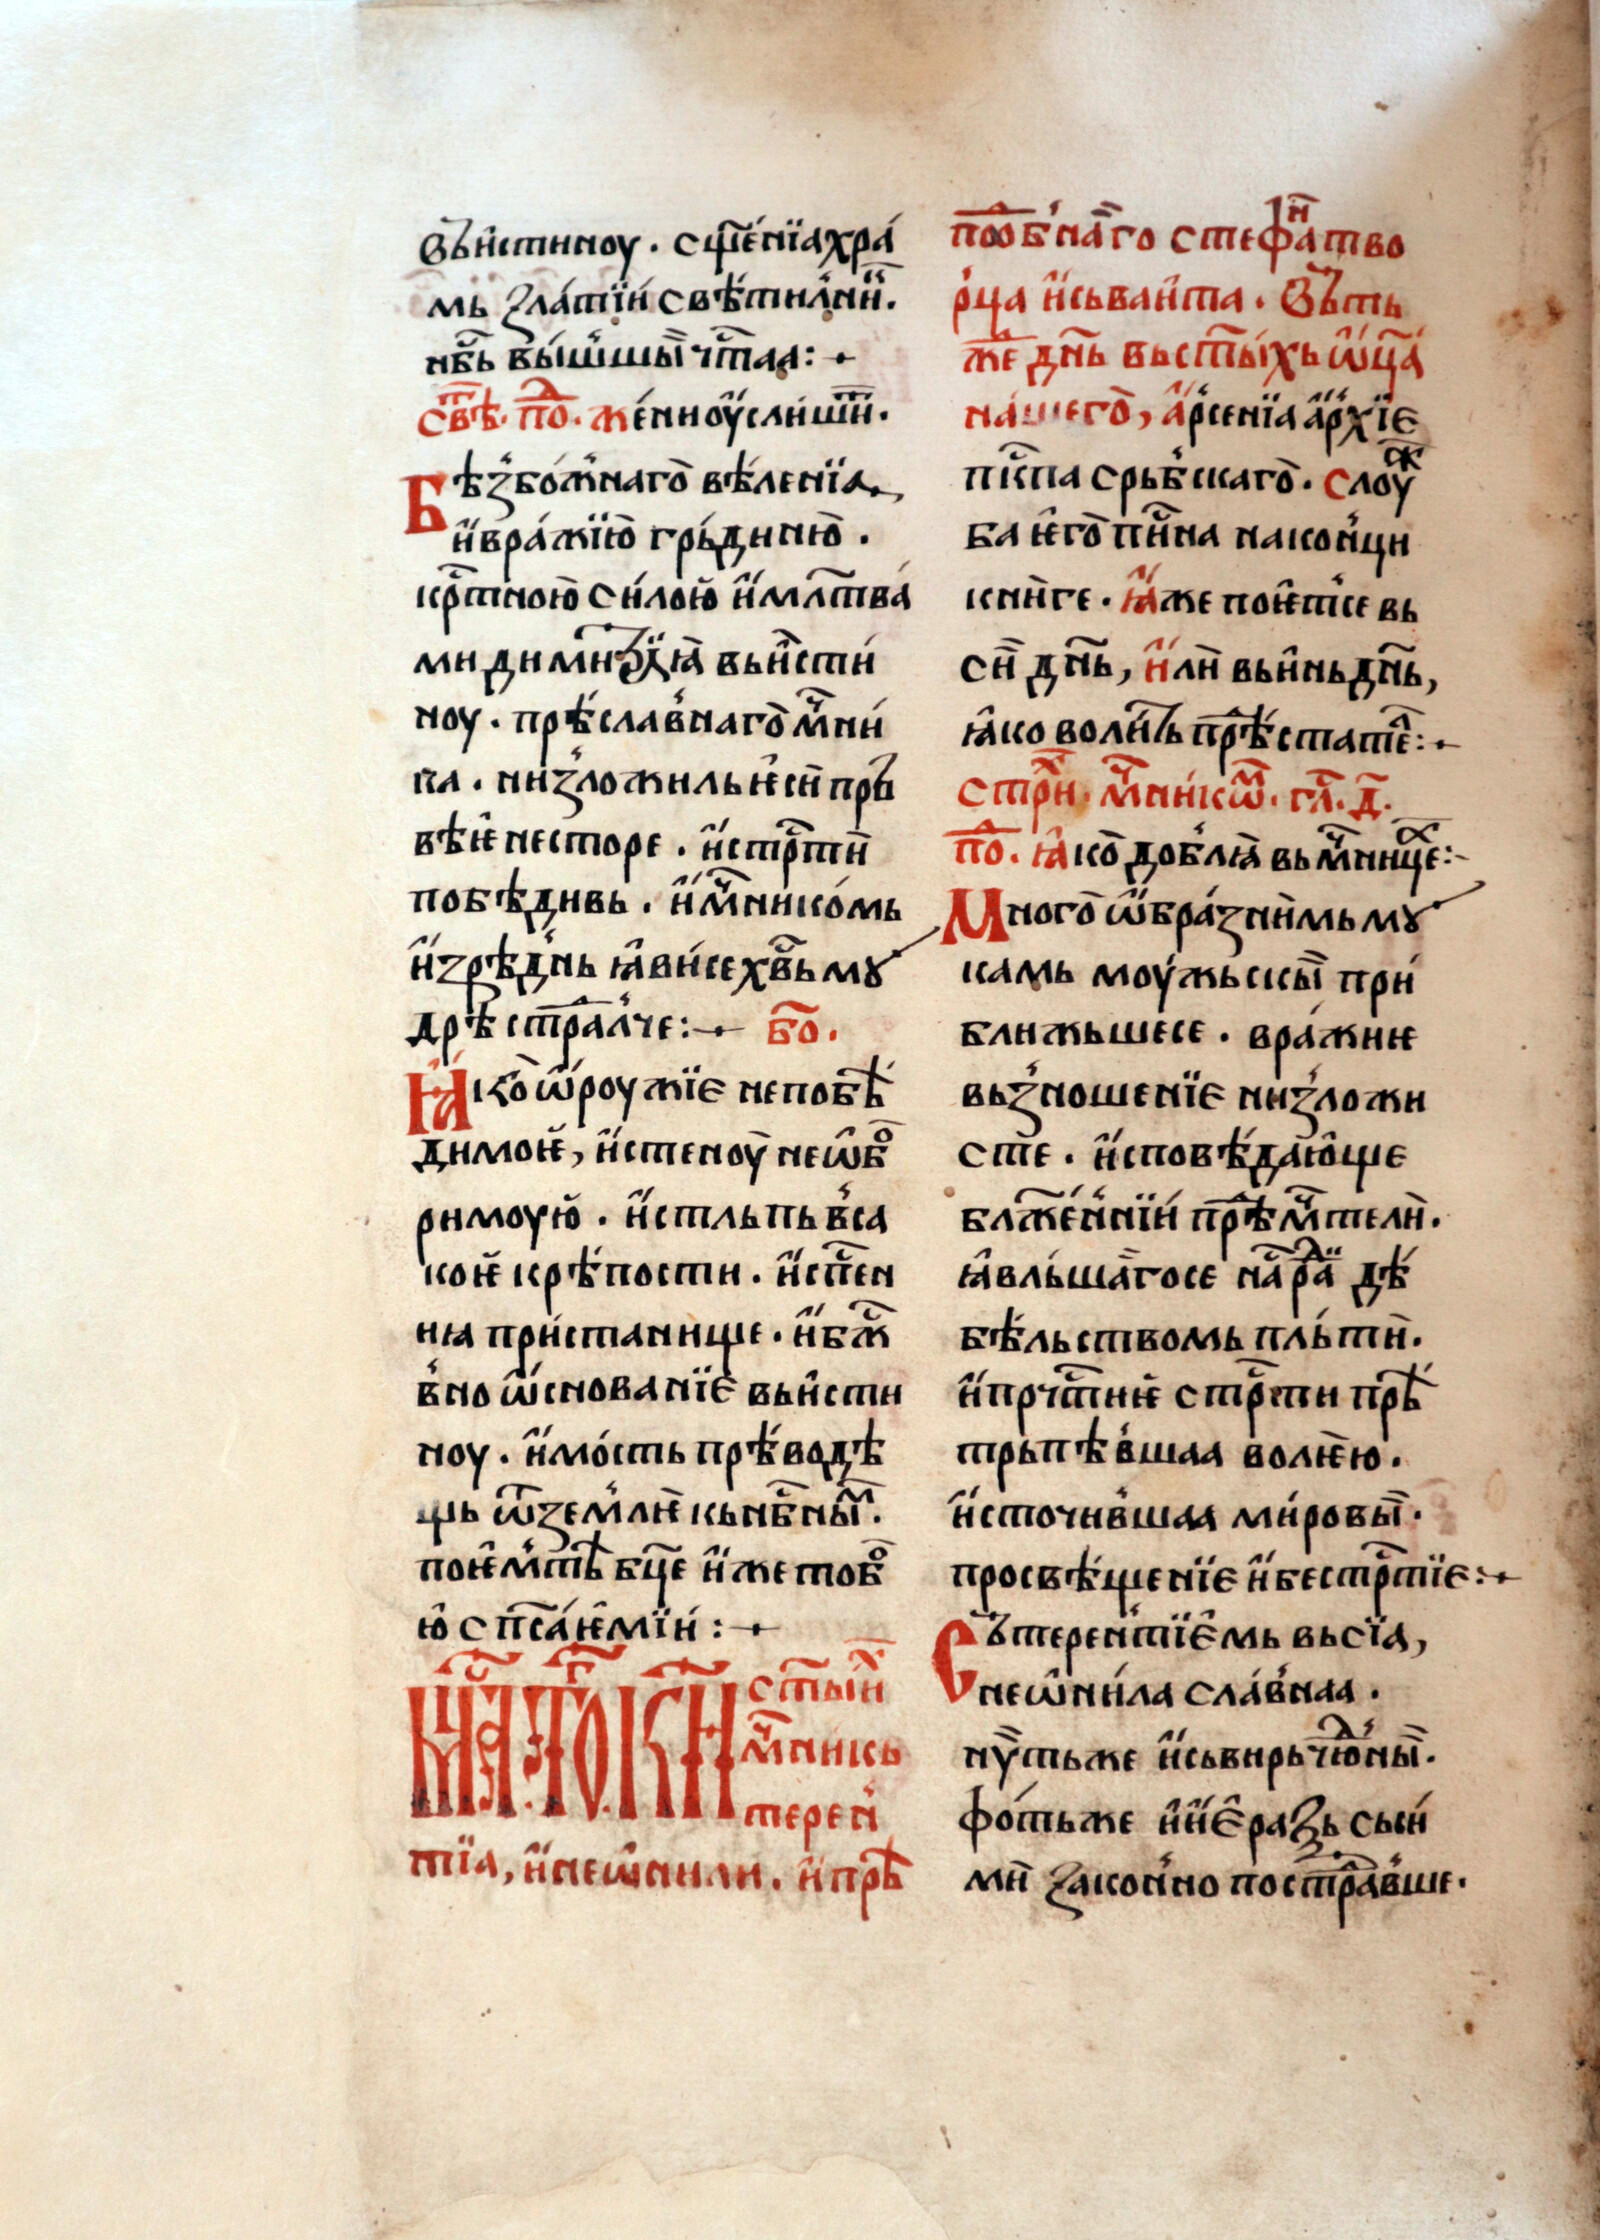 Вьи́стиноу . сщ҃е́нїа хра́
мь ꙁла́тїи свѣ́тилнїи .
нбⷭ҇ь вы́шшы чⷭ҇таа :
свѣⷮ . по�ⷣ . же́нноу́ слишиⷲ .
Бѣꙁбо́жнаго вѣ́ленїа
и҆ вра́жїю гръ́диню .
крⷭ҇тною си́лою и҆ млт҃ва́
ми димиⷮрїꙗ вьи́сти
ноу . прѣ́славнаго мⷱ҇ни́
ка . ниꙁложиль ѥ҆си прьⷡ
вѣѥ несторе . и҆ стрⷭ҇ти
побѣ́дивь . и҆ мⷱ҇нико́мь
и҆ꙁрѣ́днь ꙗ҆ви́се хвⷭ҇ь мꙋ
дрѣ страⷣа́лче : бо .
Ꙗ҆ко ѡ҆роужїе непобѣ́
димоѥ, и҆ стеноу неѡ҆боⷡ
римоую . и҆ стльпь вса
коѥ крѣ́пости . и҆ спⷭ҇ен
нїа при́станище . и҆ бж҃
вно ѡ҆снованїе вьи́сти
ноу . и҆ мо́сть прѣ́водѣ
щь ѿ ꙁемлѥ кь нбⷭ҇ныⷨ .
поѥ҆мть бц҃е и҆же тобоⷡ
ю҆ сп҃са́ѥмїи :
МⷭЦА ТОГⷤ КИ стыиⷯ
мⷱ҇никь
терен
тїа, и҆ неѡ҆нили . и҆ прѣⷣ
поⷣбнаго стефаⷩ҇а тво
рца и҆ сьваи́та . Вьть
жⷣе дн҃ь вьст҃ы́хь ѡ҆ц҃а
на́шего, а҆рсенїа а҆рхїе
пⷭ҇кпа срьбскаго . слоуⷤ
ба ѥ҆го пи́на након́ци
кни́ге . ꙗ҆же поѥ҆тⷭ҇се вь
си дн҃ь, и҆ли вьи́нь дн҃ь,
ꙗ҆ко волить прѣⷣстатеⷧ :
стриⷯ . мⷱ҇никѡⷨ . гл҃ . д҃ .
поⷣ . ꙗ҆ко доблꙗ вь мⷱ҇ницеⷯ :
Много ѡ҆бра́ꙁнимь мꙋ
камь моу́жьскы при́
ближьшесе . вра́жиѥ
вьꙁношенїе ниꙁложи
сте . и҆сповѣ́даю҆ще
блаже́ннїи прѣⷣ мⷱ҇тели .
ꙗ҆вль́шагосе на рⷣаⷭ дѣ́
бѣ́льствомь пль́ти .
и҆ прчⷭ҇тниѥ стрⷭ҇ти прѣⷣ
трьпѣ́вшаа волѥю .
и҆сточившаа ми́ровы .
просвѣ́щенїе и҆ бестрⷭ҇тїе :
Сьтерен́тїемь вьсїа,
неѡ҆ни́ла сла́внаа .
нꙋтьже и҆ сьвирьчюⷣны .
фо́тьже и҆ и҆еразь сьи́
ми ꙁакон́но пострⷣавше .